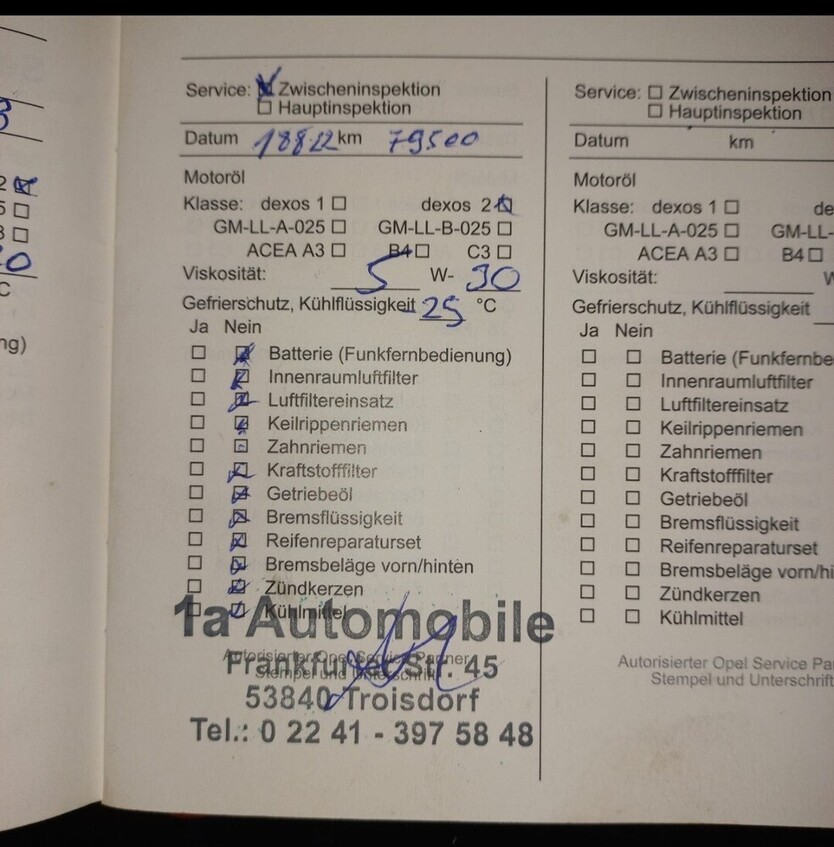 Service: ☒ Zwischeninspektion
☐ Hauptinspektion
Datum 18822 km 79500
Motoröl
Klasse: dexos 1 ☐ dexos 2 ☒
GM-LL-A-025 ☐ GM-LL-B-025 ☐
ACEA A3 ☐ B4 ☐ C3 ☐
Viskosität: 5 W- 30
Gefrierschutz, Kühlflüssigkeit 25 °C
Ja Nein
☐ ☒ Batterie (Funkfernbedienung)
☐ ☒ Innenraumluftfilter
☐ ☒ Luftfiltereinsatz
☐ ☒ Keilrippenriemen
☐ ☒ Zahnriemen
☐ ☒ Kraftstofffilter
☐ ☒ Getriebeöl
☐ ☒ Bremsflüssigkeit
☐ ☒ Reifenreparaturset
☐ ☒ Bremsbeläge vorn/hinten
☐ ☒ Zündkerzen
☐ ☒ Kühlmittel
1a Automobile
Autorisierter Opel Service Partner
Stempel und Unterschrift
Frankfurter Str. 45
53840 Troisdorf
Tel.: 0 22 41 - 397 58 48
Service: ☐ Zwischeninspektion
☐ Hauptinspektion
Datum km
Motoröl
Klasse: dexos 1 ☐ de
GM-LL-A-025 ☐ GM-LL-
ACEA A3 ☐ B4 ☐
Viskosität:
Gefrierschutz, Kühlflüssigkeit
Ja Nein
☐ ☐ Batterie (Funkfernbe
☐ ☐ Innenraumluftfilter
☐ ☐ Luftfiltereinsatz
☐ ☐ Keilrippenriemen
☐ ☐ Zahnriemen
☐ ☐ Kraftstofffilter
☐ ☐ Getriebeöl
☐ ☐ Bremsflüssigkeit
☐ ☐ Reifenreparaturset
☐ ☐ Bremsbeläge vorn/hi
☐ ☐ Zündkerzen
☐ ☐ Kühlmittel
Autorisierter Opel Service Pa
Stempel und Unterschrift